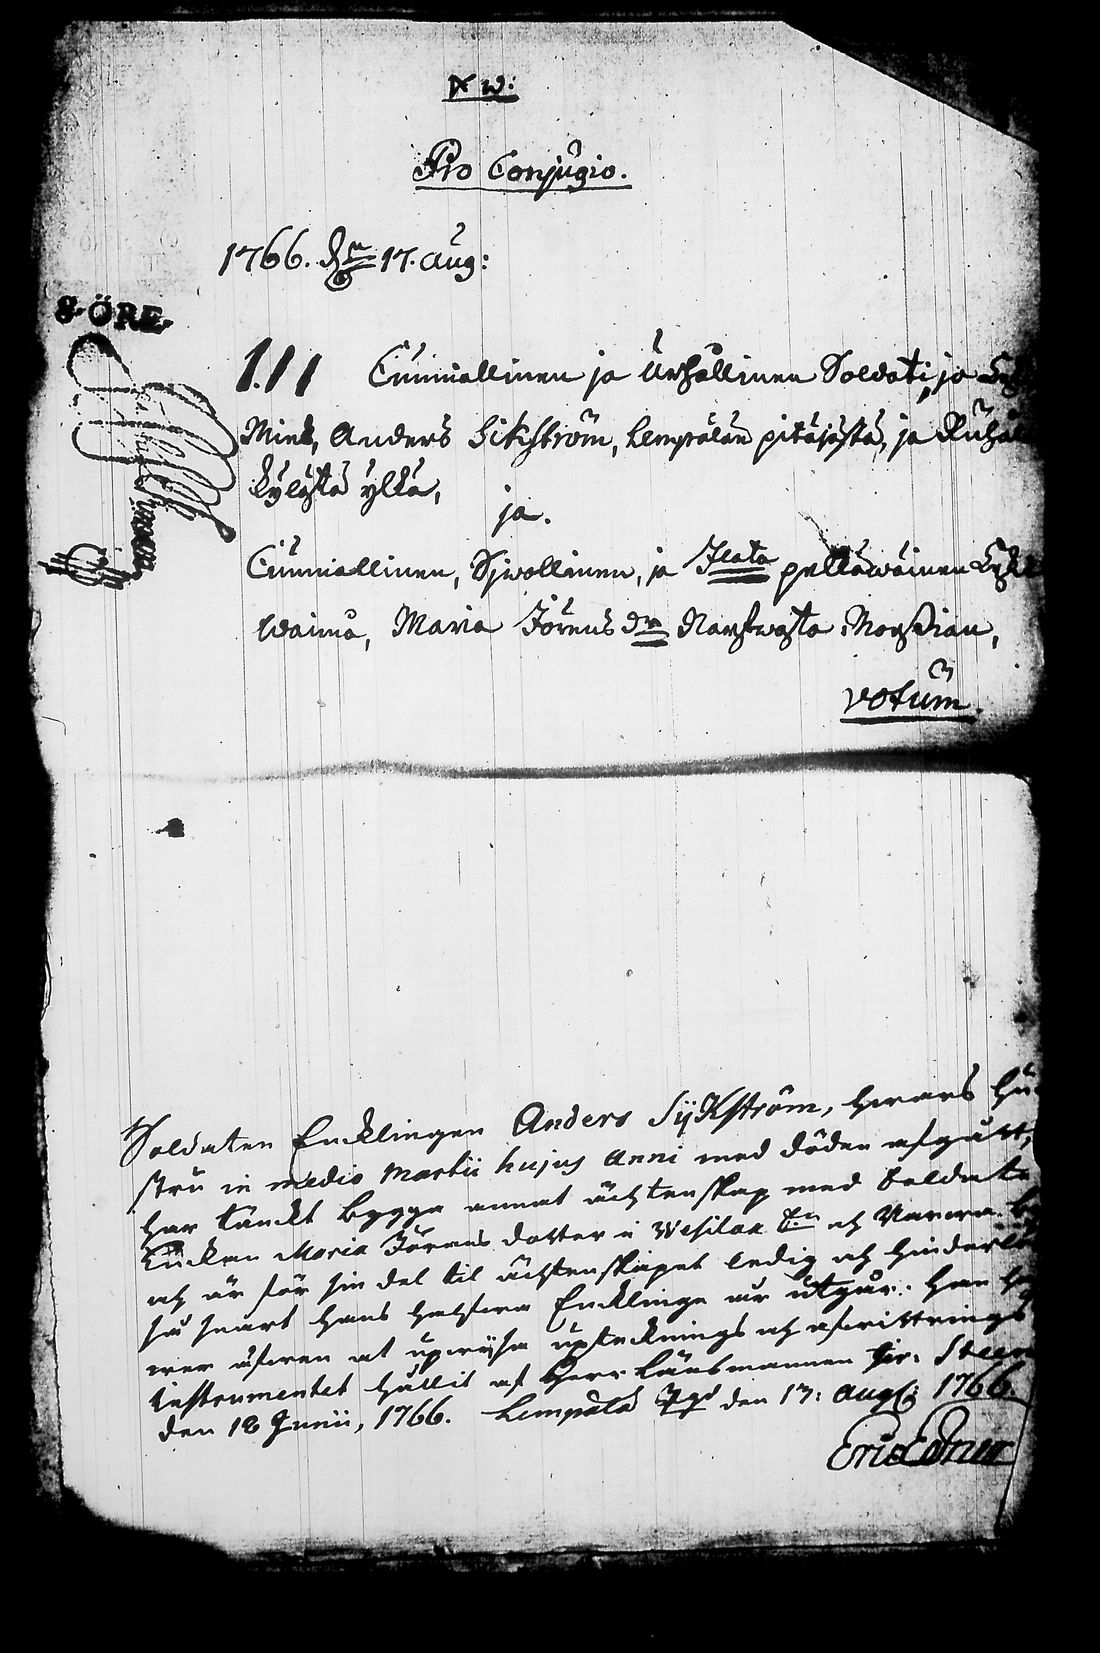 Pro Conjugio.
1766. d. 17. Aug:
8·ÖRE
1.11 Cunniallinen ja Urhollinen Soldati, ja
Mies, Anders Sikström, Lempälän pitäjästä, ja
kylästä ylkä,
ja.
Cunniallinen, Sjwollinen, ja pelkäwäinen
waimo, Maria Jörens dr Narfwasta Morsian,
votum.
Soldaten Encklingen Anders Sijkström, hwars hu
stru in medio Martii hujus Anni med döden afgått,
har tänckt bygga annat ächtenskap med Soldats
Enckan Maria Jörans dotter i Wesilax och Narwa
och är för sin del til ächtenskapet ledig och hinderlös
så snart hans Encklinge år utgår. Han
wer äfwen at upwisa uptecknings och afwittrings
instrumentet hållit af Herr Länsmannen Steen
den 18 Junii, 1766. Lempälä den 17: Aug: 1766.
Eric